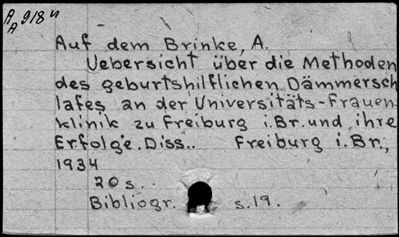 A
A 918 n
Auf dem Brinke, A.
Uebersicht über die Methoden
des geburtshilflichen Dämmersch
lafes an der Universitäts-Frauen
klinik zu Freiburg i.Br. und ihre
Erfolge. Diss.. Freiburg i. Br.,
1934
20 s..
Bibliogr. s.19.